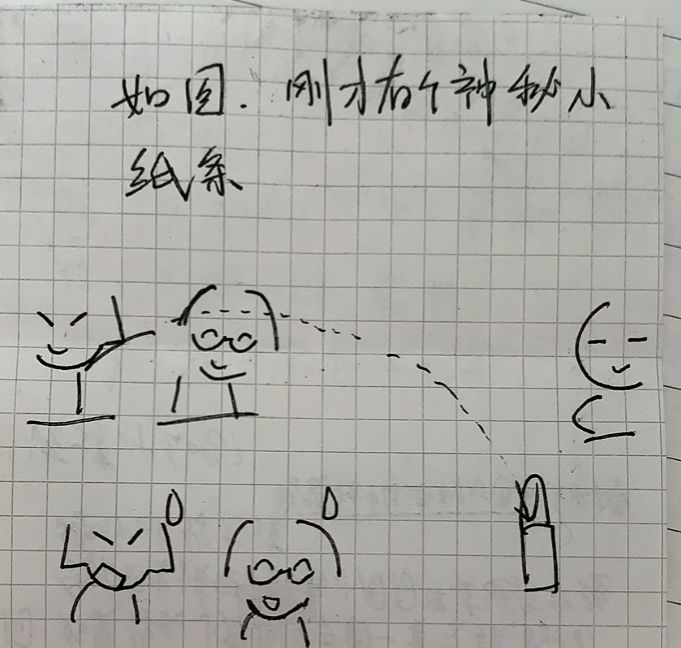 如图. 刚才有个神秘小
纸条